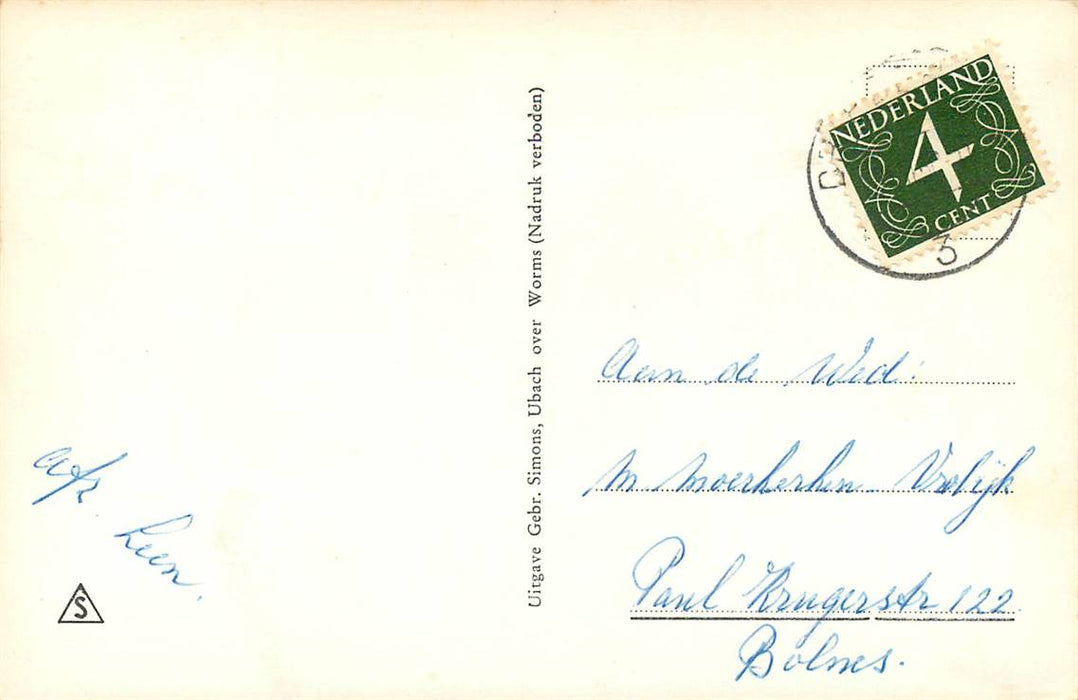 NEDERLAND
4
CENT
3
Aan de Wed:
M Moerkerken-Vrolijk
Paul Krugerstr 122
Bolnes.
Uitgave Gebr. Simons, Ubach over Worms (Nadruk verboden)
afz. Leen.
S